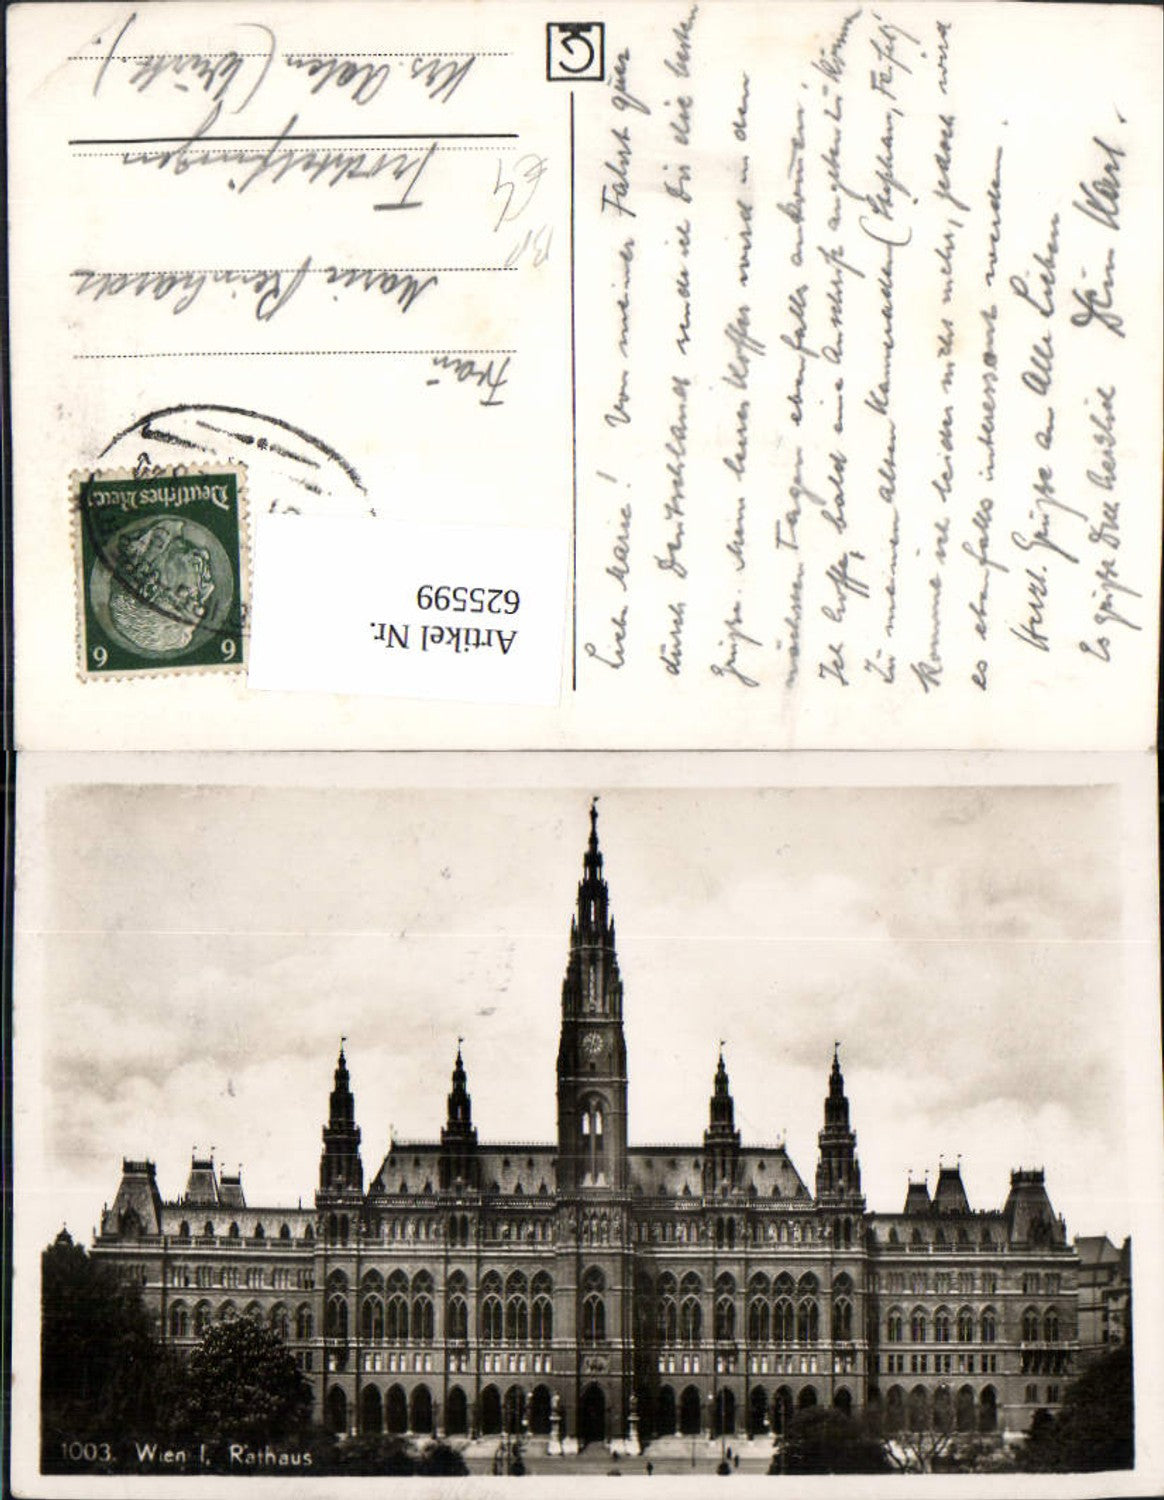 Liebe Marie! Von meiner Fahrt quer
durch Deutschland sende ich Dir die besten
Grüsse. Mein leerer Koffer wird in den
nächsten Tagen ebenfalls ankommen.
Ich hoffe, bald eine Anschrift angeben zu können
Zu meinen alten Kameraden (Stephan,
komme ich leider nicht mehr, jedoch wird
es ebenfalls interessant werden.
Herzl. Grüsse an Alle Lieben
Es grüsst Dich herzlich Dein Karl.
Frau
Marie Reinhardt
Trochtelfingen
Krs. Aalen (Württ.)
Deutsches Reich
6 6
Artikel Nr.
625599
1003. Wien I. Rathaus